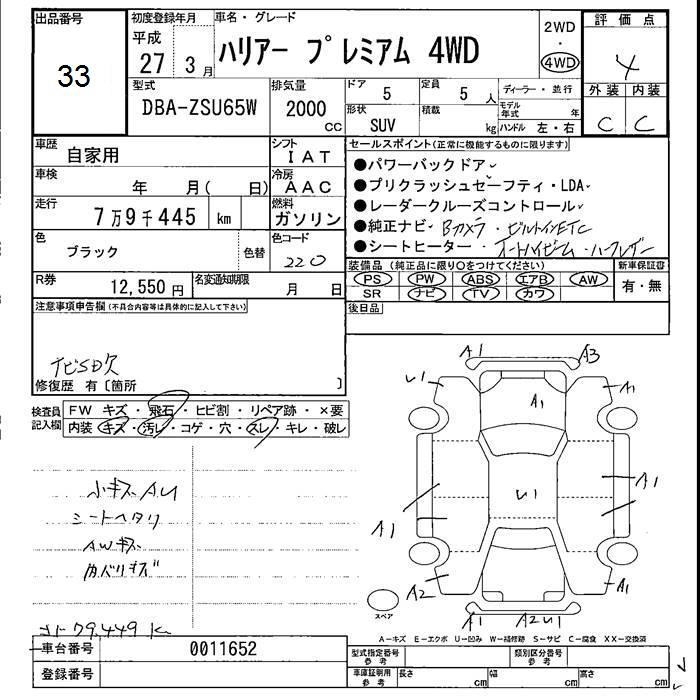 出品番号 初度登録年月 車名・グレード 評価点
33 平成 27 3月 ハリアー プレミアム 4WD 2WD・4WD 4
型式 排気量 ドア 定員 ディーラー・並行 外装 内装
DBA-ZSU65W 2000cc 5 5人 C C
形状 積載 モデル年式 年
SUV kg ハンドル 左・右
車歴 自家用 シフト IAT
車検 年 月( 日) 冷房 AAC
走行 7万9千445 km 燃料 ガソリン
色 ブラック 色替 色コード 220
R券 12,550円 名変通知期限 月 日
注意事項申告欄(不具合内容等は具体的に記入して下さい)
ナビSD欠
修復歴 有〔箇所 〕
セールスポイント(正常に機能するものに限ります)
●パワーバックドア
●プリクラッシュセーフティ・LDA
●レーダークルーズコントロール
●純正ナビ・Bカメラ・ビルトインETC
●シートヒーター・オートハイビーム・ハーフレザー
装備品(純正品に限り○をつけてください) 新車保証書
PS PW ABS エアB AW 有・無
SR ナビ TV カワ
後日品
検査員記入欄 FW キズ・飛石・ヒビ割・リペア跡・×要
内装 キズ・汚レ・コゲ・穴・スレ・キレ・破レ
小キズAU
シートヘタリ
AWキズ
内バリキズ
79,449 K
A1 A3
U1 A1 A1
U1 A1
A1
A2 A1
A1 A2U1
スペア
A−キズ E−エクボ U−凹み W−補修跡 S−サビ C−腐食 XX−交換済
車台番号 0011652
登録番号
型式指定番号 参考 類別区分番号 参考
車庫証明用 参考 長さ cm 幅 cm 高さ cm